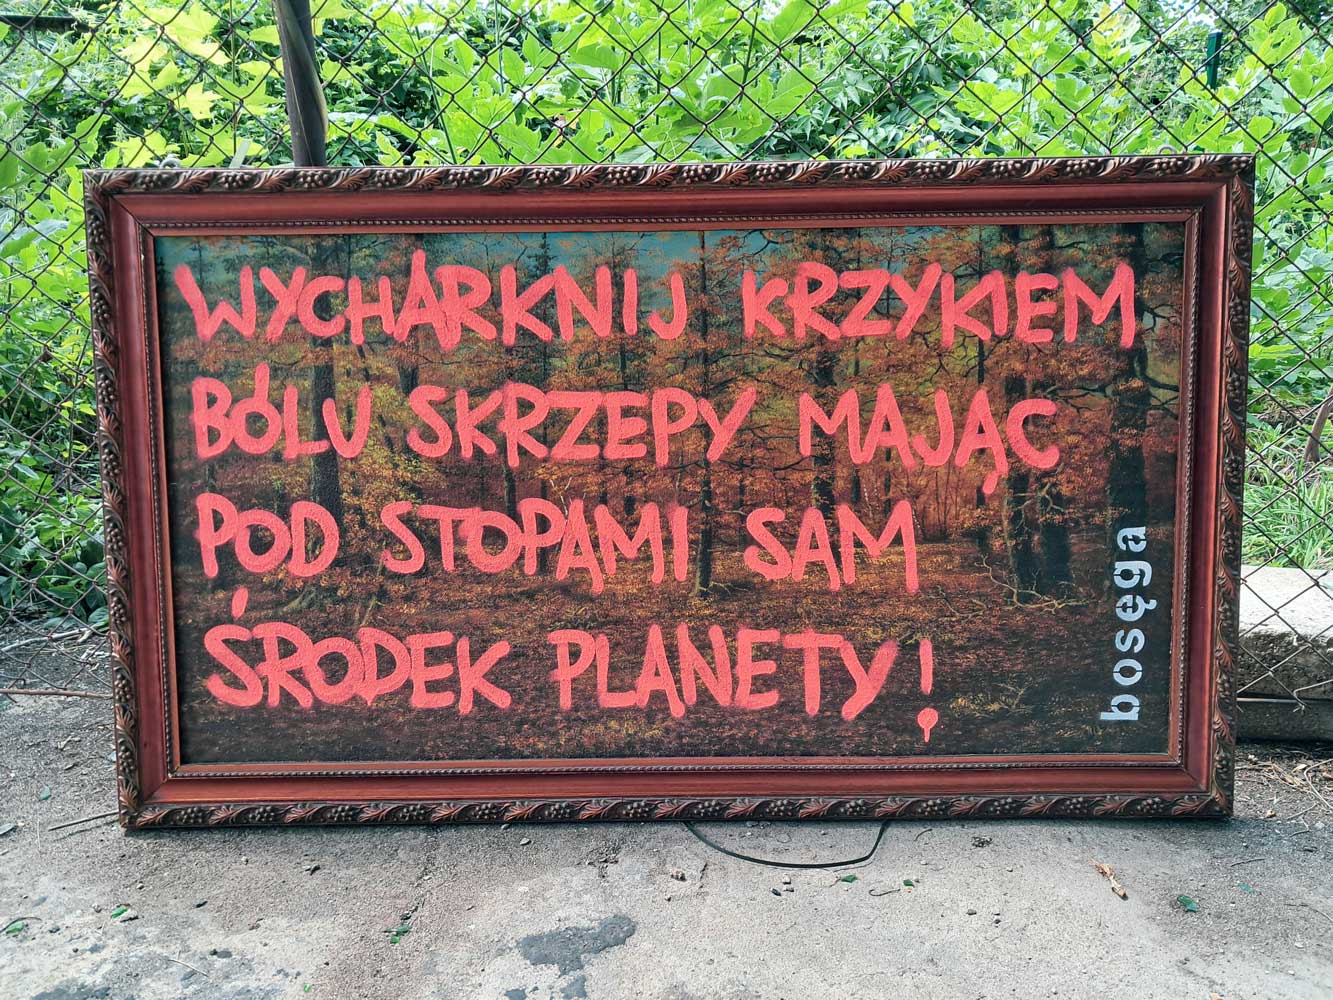 WYCHARKNIJ KRZYKIEM
BÓLU SKRZEPY MAJĄC
POD STOPĄMI SAM
ŚRODEK PLANETY!
bosęga